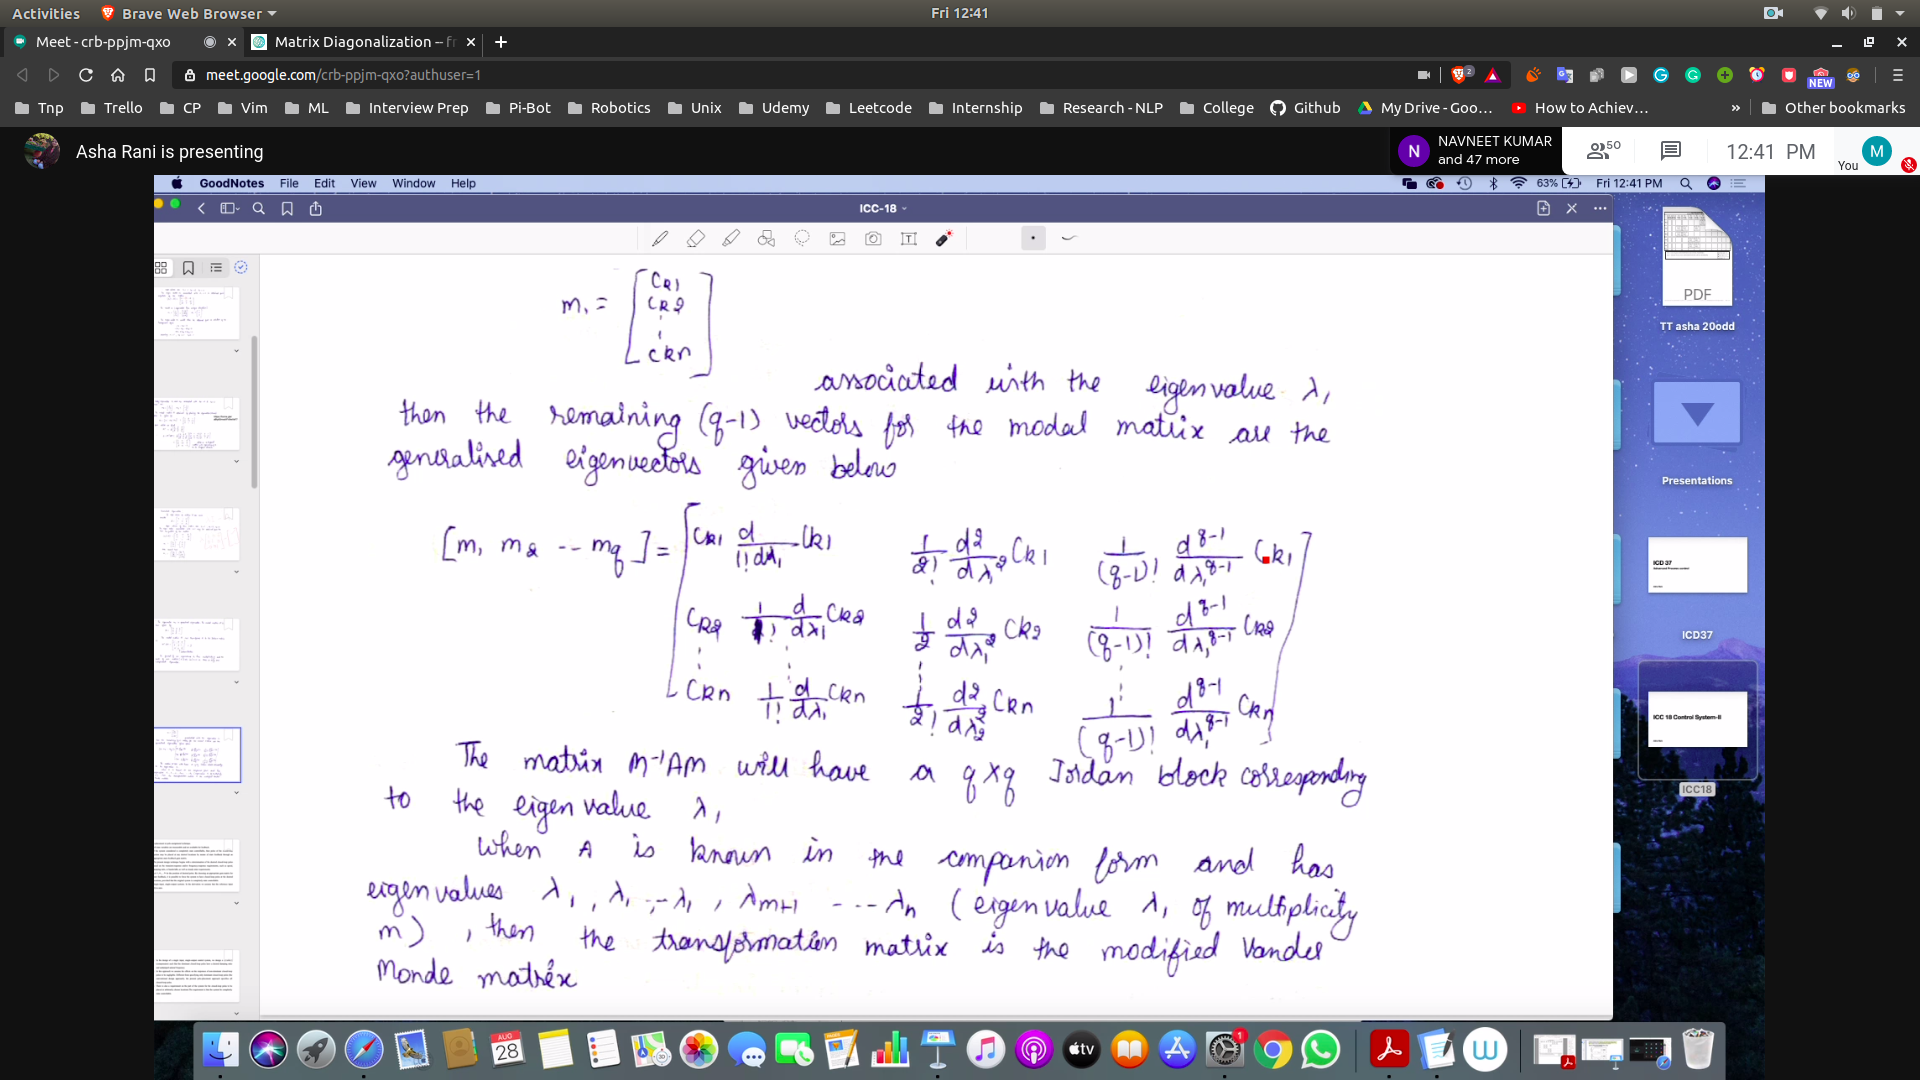 Activities Brave Web Browser Fri 12:41
Meet - crb-ppjm-qxo Matrix Diagonalization – fr
meet.google.com/crb-ppjm-qxo?authuser=1
Tnp Trello CP Vim ML Interview Prep Pi-Bot Robotics Unix Udemy Leetcode Internship Research - NLP College Github My Drive - Goo... How to Achiev... » Other bookmarks
2 NEW
Asha Rani is presenting
N NAVNEET KUMAR and 47 more 50 12:41 PM You M
GoodNotes File Edit View Window Help 63% Fri 12:41 PM
ICC-18
m₁ = [Ck1 Ck2 ⋮ Ckn]
associated with the eigenvalue λ₁
then the remaining (q-1) vectors for the modal matrix are the
generalised eigenvectors given below
[m₁ m₂ -- mq] = [Ck1 d/1!dλ₁ Ck1 1/2! d²/dλ₁² Ck1 1/(q-1)! d^q-1/dλ₁^q-1 Ck1
Ck2 1/1! d/dλ₁ Ck2 1/2 d²/dλ₁² Ck2 1/(q-1)! d^q-1/dλ₁^q-1 Ck2
⋮
Ckn 1/1! d/dλ₁ Ckn 1/2! d²/dλ₂² Ckn 1/(q-1)! d^q-1/dλ₁^q-1 Ckn]
The matrix M⁻¹AM will have a q×q Jordan block corresponding
to the eigen value λ₁
When A is known in the companion form and has
eigenvalues λ₁, λ₁ --, λ₁, λm+1 --- λn (eigenvalue λ₁ of multiplicity
m), then the transformation matrix is the modified Vander
Monde matrix
PDF
TT asha 20odd
Presentations
ICD 37
ICD37
ICC 18 Control System-II
ICC18
AUG 28
tv
1